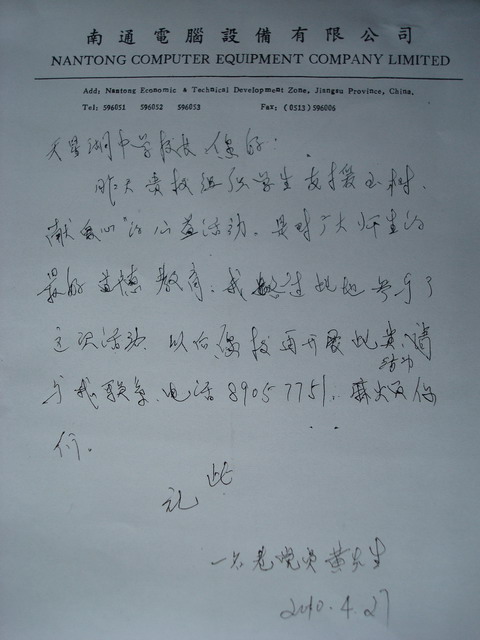 南通電腦設備有限公司
NANTONG COMPUTER EQUIPMENT COMPANY LIMITED
Add: Nantong Economic & Technical Development Zone, Jiangsu Province, China.
Tel: 596051 596052 596053 Fax: (0513) 596006
天星湖中学校长、您好：
昨天贵校组织学生支援玉树、
献爱心的公益活动。是对广大师生的
最好道德教育。我路过此地参与了
这次活动 以后您校再开展此类活动 请
与我联系、电话 89057751, 麻烦你
们。
此
礼
一名老党员 黄先生
2010.4.27